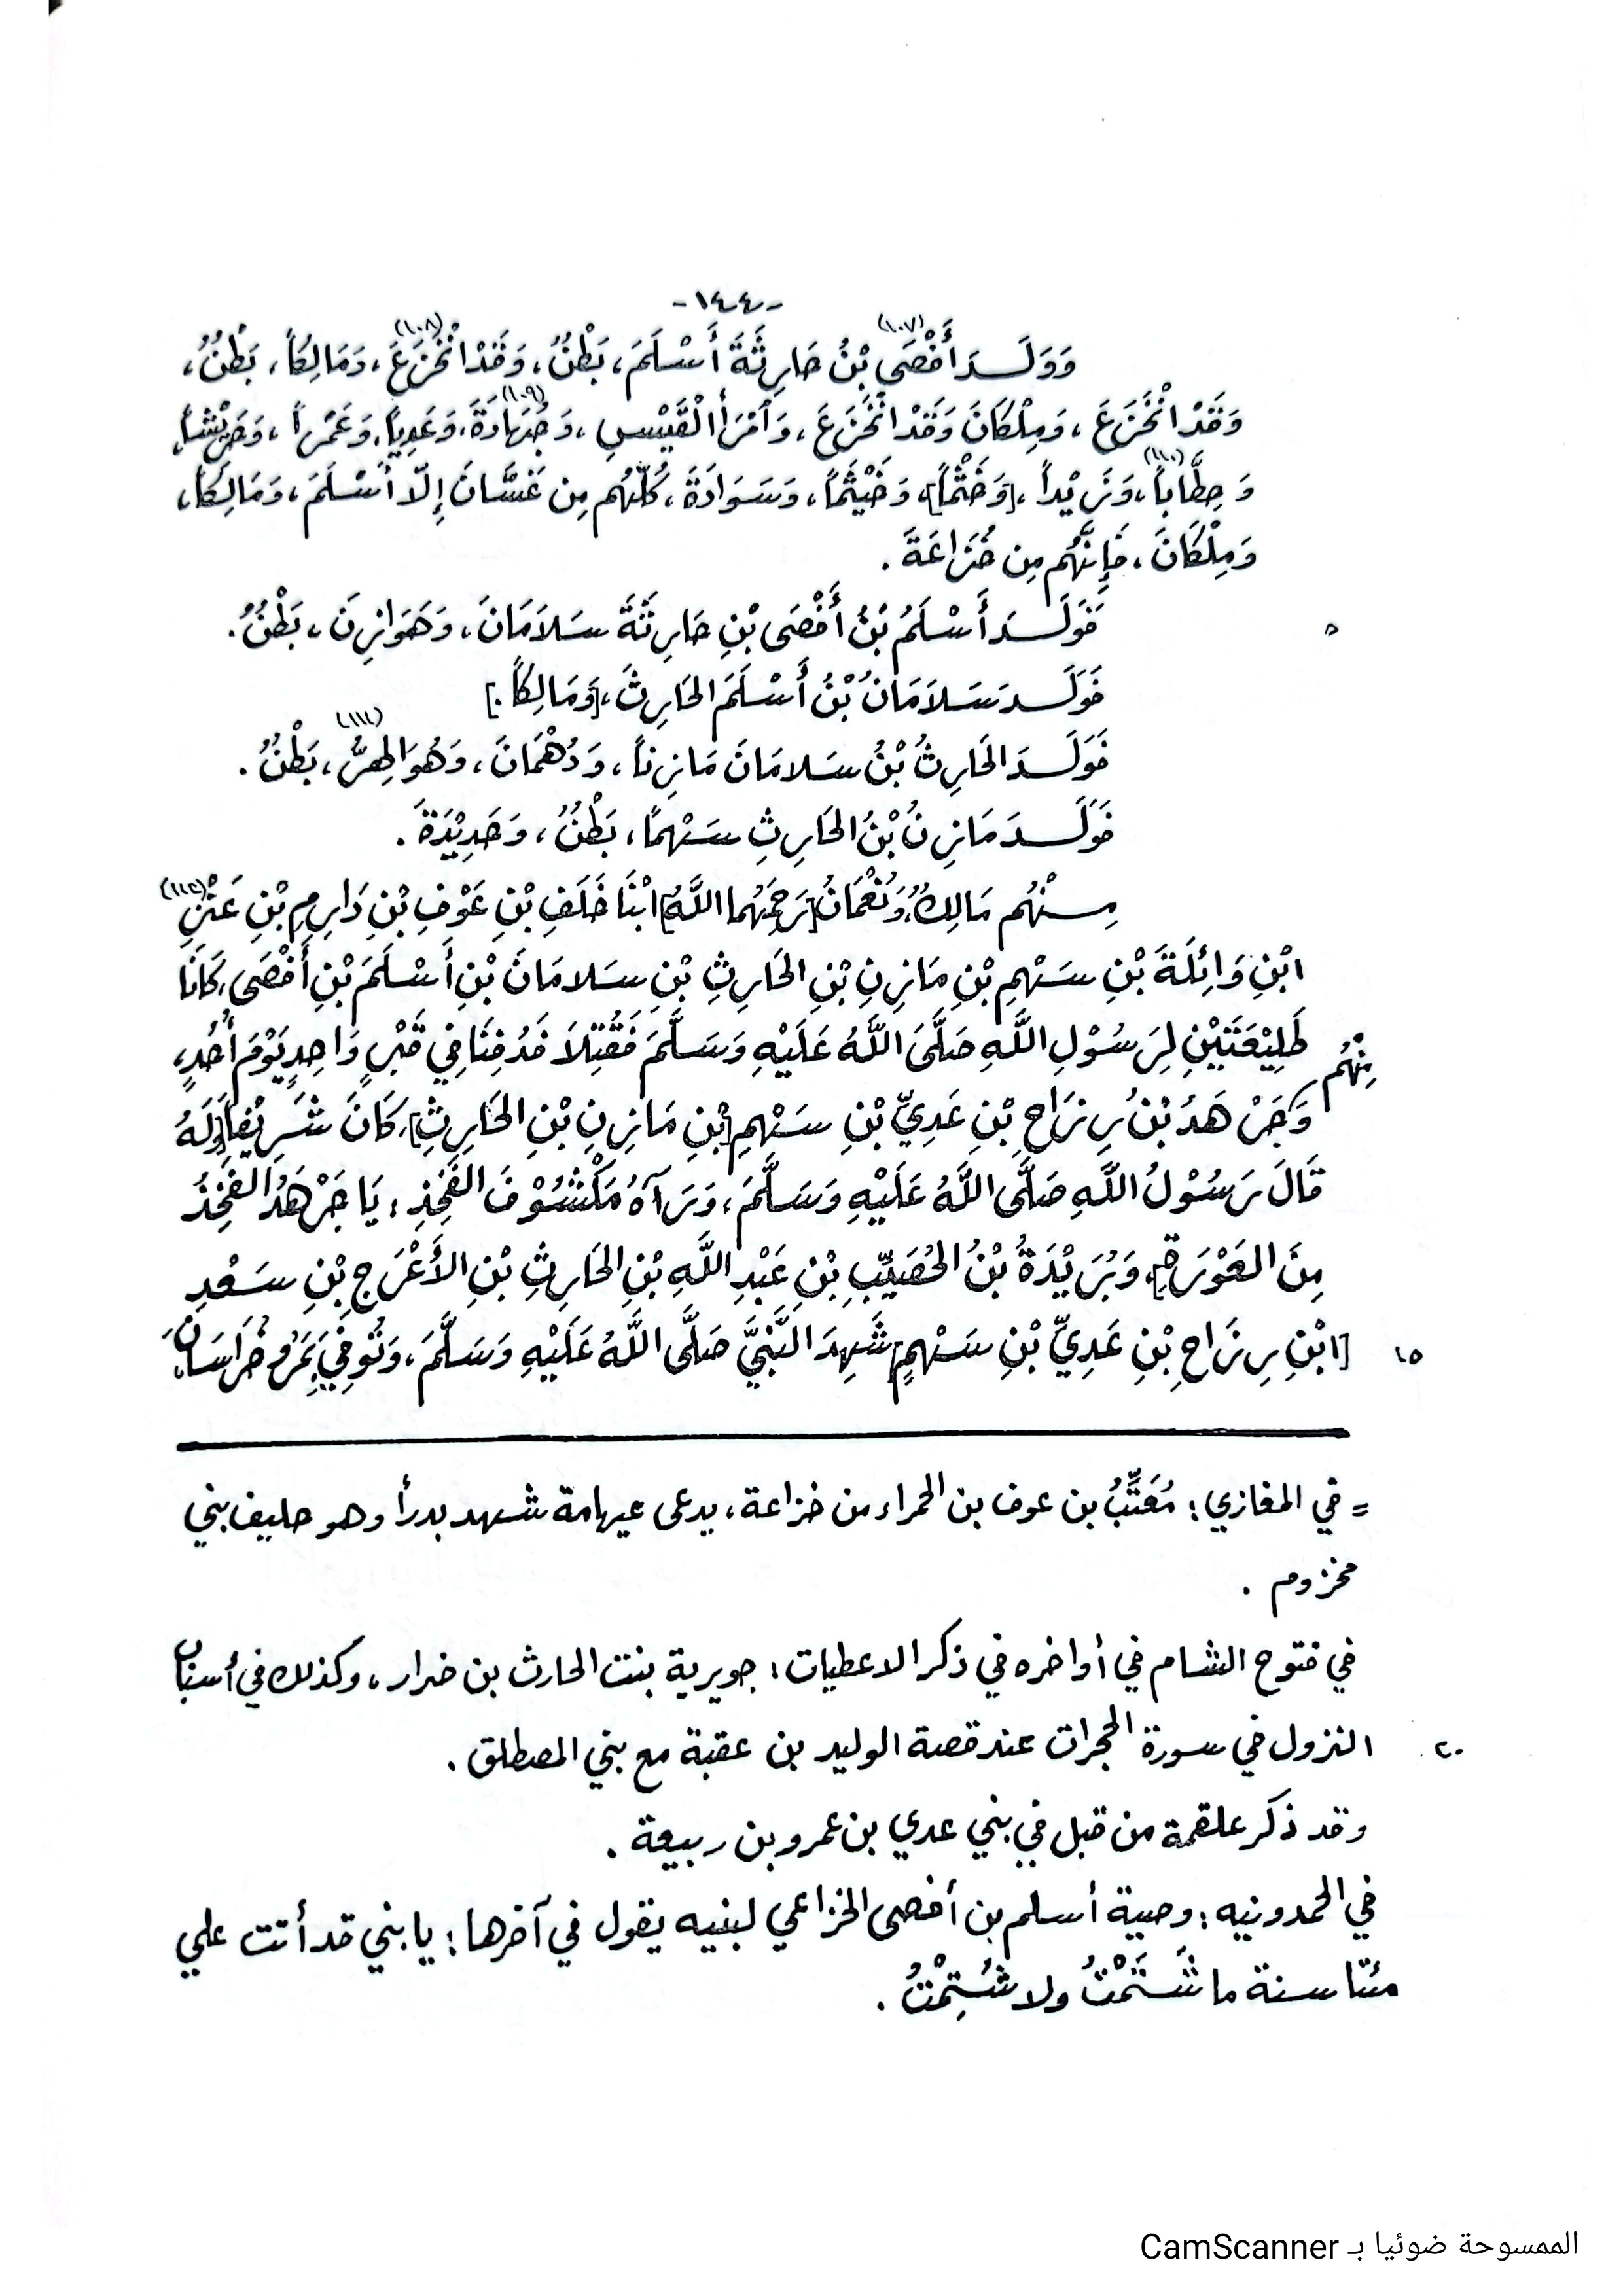 -١٤٤-
وَوَلَـدَ أَفْصَى(١٠٧) بْنُ حَارِثَةَ أَسْلَمَ، بَطْنٌ، وَقَدْ انْخَزَعَ(١٠٨)، وَمَالِكاً، بَطْنٌ،
وَقَدْ انْخَزَعَ، وَمِلْكَانَ وَقَدْ انْخَزَعَ، وَامْرَأَ الْقَيْسِ، وَجُهَادَةَ(١٠٩)، وَعَدِيّاً، وَعَمْراً، وَحَرِيْشاً،
وَحِطَّاباً(١١٠)، وَزَيْداً، [وَخَثْماً]، وَخَيْثَماً، وَسَوَادَةَ، كُلُّهُم مِن غَسَّانَ إِلّا أَسْلَمَ، وَمَالِكاً،
وَمِلْكَانَ، فَإِنَّهُم مِن خُزَاعَةَ.
٥ فَوَلَـدَ أَسْلَمُ بْنُ أَفْصَى بْنِ حَارِثَةَ سَلَامَانَ، وَهَوَازِنَ، بَطْنٌ.
فَوَلَـدَ سَلَامَانُ بْنُ أَسْلَمَ الحَارِثَ، [وَمَالِكاً.]
فَوَلَـدَ الحَارِثُ بْنُ سَلامَانَ مَازِناً، وَدُهْمَانَ، وَهُوَ الهِرُّ(١١١)، بَطْنٌ.
فَوَلَـدَ مَازِنُ بْنُ الحَارِثِ سَهْماً، بَطْنٌ، وَحَدِيْدَةَ.
مِـنْهُم مَالِكٌ، وَنُعْمَانُ [رَحِمَهُما اللَّهُ] ابْنَا خَلَفِ بْنِ عَوْفِ بْنِ دَارِمِ بْنِ عَنْزِ(١١٢)
ابْنِ وَائِلَةَ بْنِ سَهْمِ بْنِ مَازِنِ بْنِ الحَارِثِ بْنِ سَلامَانَ بْنِ أَسْلَمَ بْنِ أَفْصَى، كَانَا
طَلِيْعَتَيْنِ لِرَسُوْلِ اللَّهِ صَلَّى اللَّهُ عَلَيْهِ وَسَلَّمَ فَقُتِلَا فَدُفِنَا فِي قَبْرٍ وَاحِدٍ يَوْمَ أُحُدٍ،
مِنْهُم وَجَرْهَدُ بْنُ رِزَاحِ بْنِ عَدِيِّ بْنِ سَهْمِ [بْنِ مَازِنِ بْنِ الحَارِثِ]، كَانَ شَرِيْفاً، [وَلَهُ
قَالَ رَسُوْلُ اللَّهِ صَلَّى اللَّهُ عَلَيْهِ وَسَلَّمَ، وَرَآهُ مَكْشُوْفَ الفَخِذِ: يَا جَرْهَدُ الفَخِذُ
مِنَ العَوْرَةِ]، وَبُرَيْدَةُ بْنُ الحُصَيِّبِ بْنِ عَبْدِ اللَّهِ بْنِ الحَارِثِ بْنِ الأَعْرَجِ بْنِ سَعْدِ
١٥ [ابْنِ رِزَاحِ بْنِ عَدِيِّ بْنِ سَهْمٍ] شَهِدَ النَّبِيَّ صَلَّى اللَّهُ عَلَيْهِ وَسَلَّمَ، وَتُوفِّيَ بِمَرْوِ خُرَاسَانَ،
= في المغازي: مُعَتِّبُ بن عوف بن الحمراء من خزاعة، يدعى عيهامة شهد بدرأ وهو حليف بني
مخزوم.
في فتوح الشام في أواخره في ذكر الاعطيات: جويرية بنت الحارث بن ضرار، وكذلك في أسباب
٢٠ النزول في سورة الحجرات عند قصة الوليد بن عقبة مع بني المصطلق.
وقد ذكر علقمة من قبل في بني عدي بن عمرو بن ربيعة.
في الحمدونيه: وصية أسلم بن أفصى الخزاعي لبنيه يقول في آخرها: يا بني قد أتت علي
مئتا سنة ما شَتَمْتُ ولا شُتِمْتُ.
الممسوحة ضوئيا بـ CamScanner